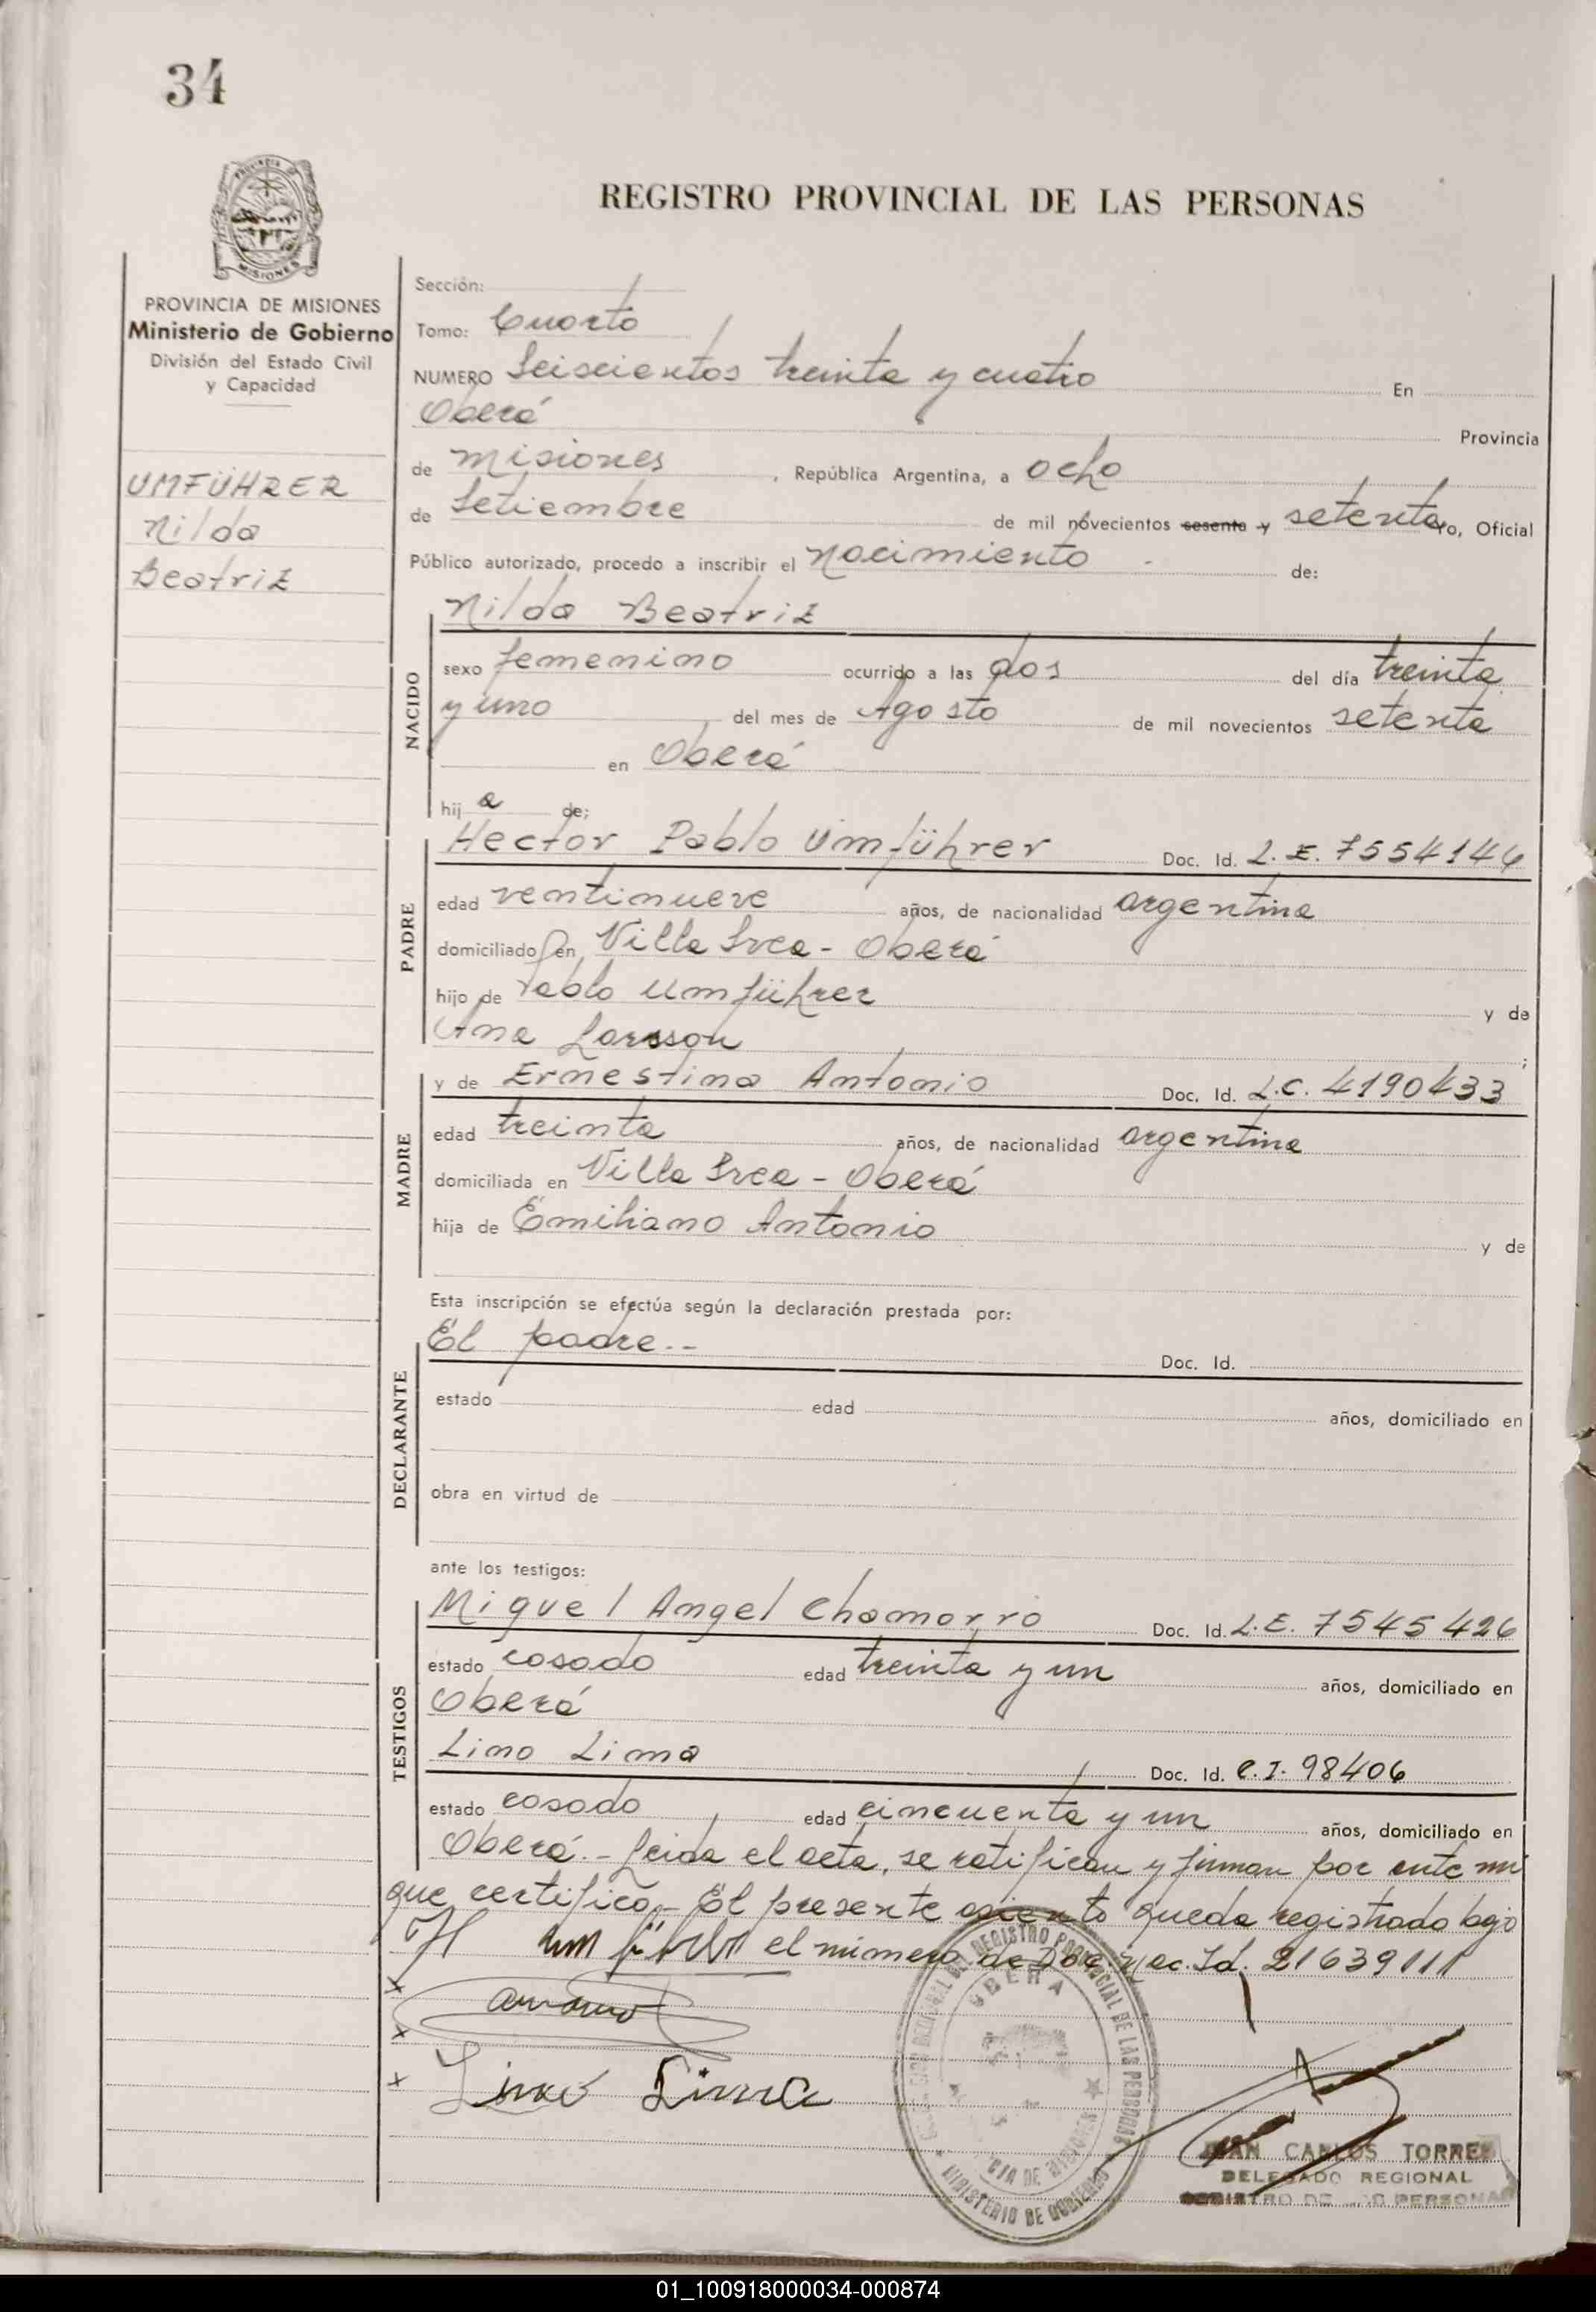 34
PROVINCIA DE
MISIONES
REGISTRO PROVINCIAL DE LAS PERSONAS
PROVINCIA DE MISIONES
Ministerio de Gobierno
División del Estado Civil
y Capacidad
UMFÜHRER
Nilda
Beatriz
Sección:
Tomo: Cuarto
NUMERO Seiscientos treinta y cuatro En
Oberá Provincia
de Misiones, República Argentina, a ocho
de Setiembre de mil novecientos sesenta y setenta yo, Oficial
Público autorizado, procedo a inscribir el nacimiento de:
NACIDO
Nilda Beatriz
sexo femenino ocurrido a las dos del día treinta
y uno del mes de Agosto de mil novecientos setenta
en Oberá
hija de;
PADRE
Hector Pablo Umführer Doc. Id. L.E. 7554146
edad ventinueve años, de nacionalidad argentina
domiciliado en Villa Svea - Oberá
hijo de Pablo Umführer y de
Ana Larsson ;
MADRE
y de Ernestina Antonio Doc. Id. L.C. 4190433
edad treinta años, de nacionalidad argentina
domiciliada en Villa Svea - Oberá
hija de Emiliano Antonio y de
Esta inscripción se efectúa según la declaración prestada por:
DECLARANTE
El padre.-- Doc. Id.
estado edad años, domiciliado en
obra en virtud de
ante los testigos:
TESTIGOS
Miguel Angel Chamorro Doc. Id. L.E. 7545426
estado casado edad treinta y un años, domiciliado en
Oberá
Lino Lima Doc. Id. C.I. 98406
estado casado edad cincuenta y un años, domiciliado en
Oberá.- Leida el acta, se ratifican y firman por ante mi
que certifico.- El presente asiento queda registrado bajo
el número de Doc. Nac. Id. 21639111
H Umführer
Lino Lima
REGISTRO PROVINCIAL DE LAS PERSONAS
OBERA
MINISTERIO DE GOBIERNO
JUAN CARLOS TORRES
DELEGADO REGIONAL
REGISTRO DE LAS PERSONAS
01_100918000034-000874